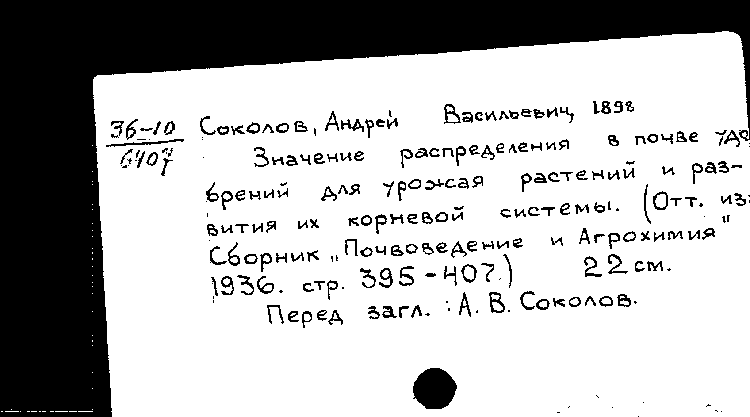 36-10 Соколов, Андрей Васильевич, 1898
6407 Значение распределения в почве удо
брений для урожая растений и раз-
вития их корневой системы. (Отт. из:
Сборник „Почвоведение и Агрохимия"
1936. стр. 395-407.) 22 см.
Перед загл.: А. В. Соколов.